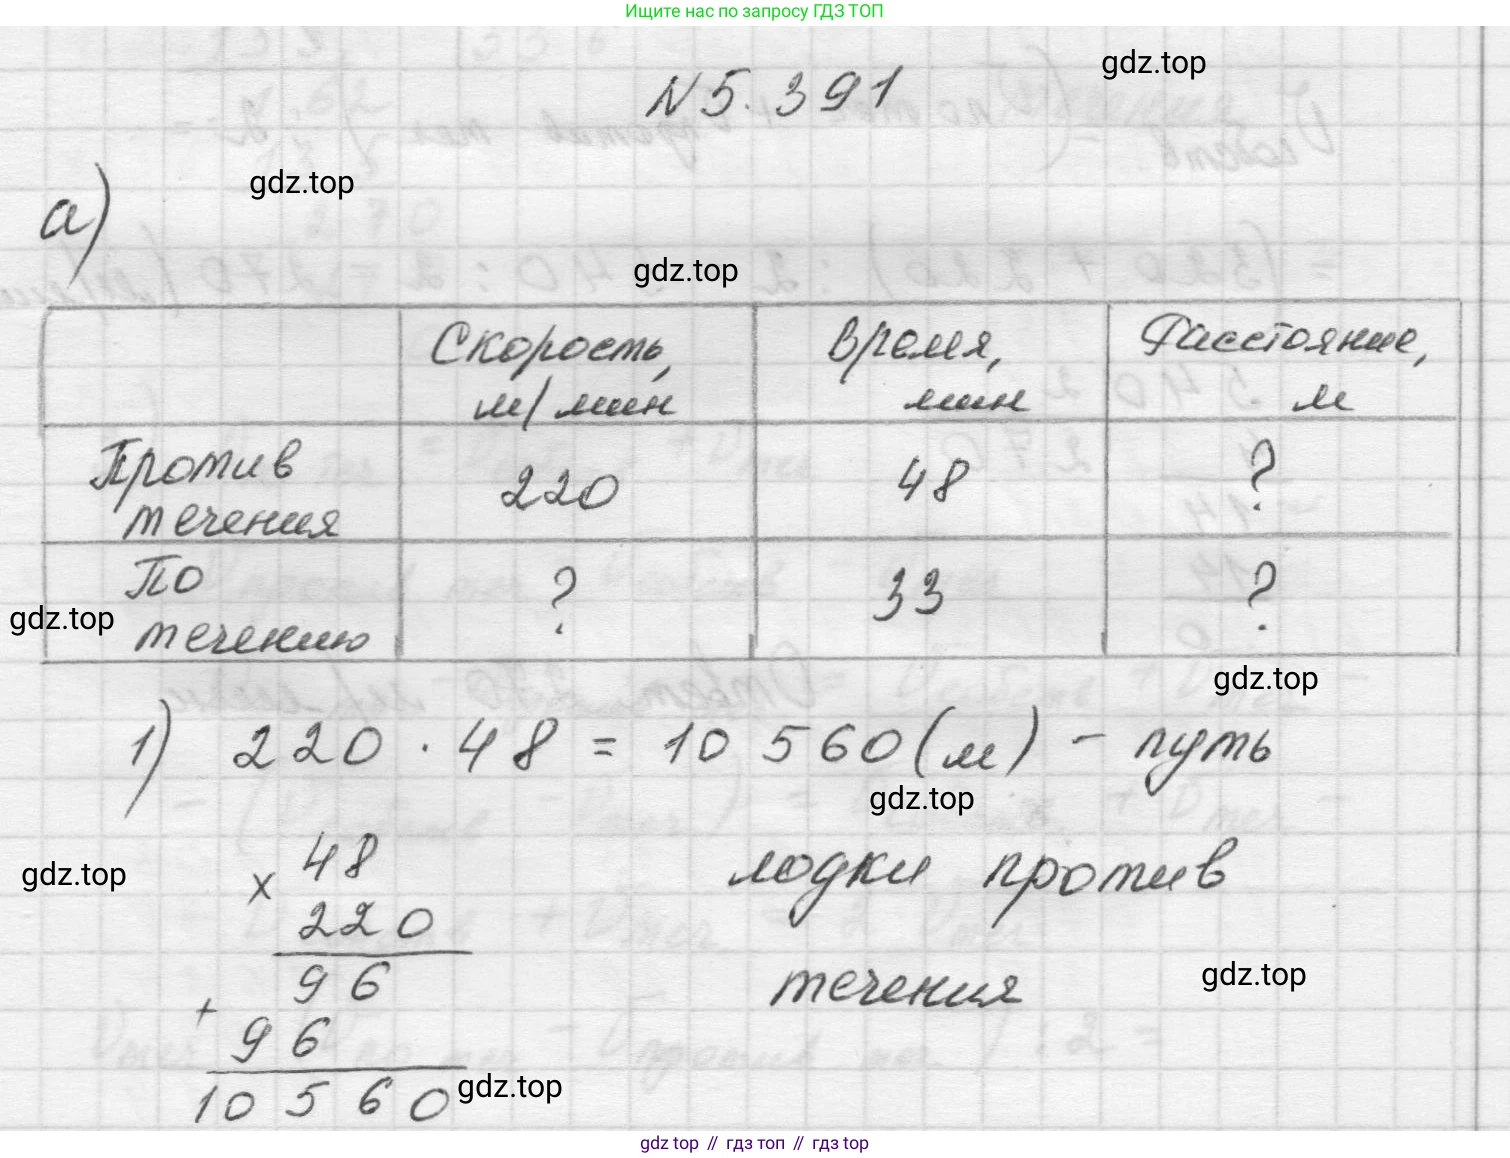 Ищите нас по запросу ГДЗ ТОП
gdz.top
N 5.391
gdz.top
а)
gdz.top
Скорость, м/мин
Время, мин
Расстояние, м
Против течения
220
48
?
По течению
?
33
?
gdz.top
gdz.top
1) 220 · 48 = 10 560 (м) - путь
gdz.top
лодки против
течения
gdz.top
gdz.top
× 48
220
96
+
96
10560
gdz.top
gdz top // гдз топ // гдз top